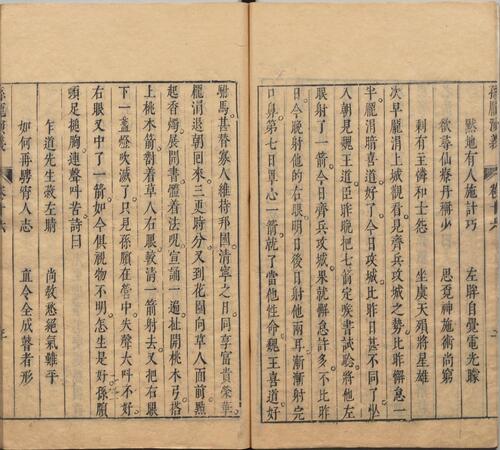 黙地有人施計巧 左眸自覺電光賒
欲尋仙療丹稱少 思覓神施術尚窮
剩有主儔和士 坐虞天殞將星雄
次早龐涓上城觀看見齊兵攻城之勢比昨懈怠一
半龐涓暗喜道好了今日攻城比昨日甚不同了坐
入朝見魏王道臣昨晚把七箭定喉書試騐將他左
眼射了一箭今日齊兵攻城果就懈怠許多不比昨
日今晚射他的右眼明日後日射他兩耳漸漸射完
口鼻第七日單心一箭就了當他性命魏王喜道好
駙馬甚替寡人維持邦國清寧之日同享富貴榮華
龐涓退朝回來三更時分又到花園向草人面前點
起香燭展開書體着法咒宣誦一遍扯開桃木弓搭
上桃木箭對着草人右眼較清一箭射去又把右眼
下一盞燈吹滅了只見孫臏在營中失聲大呌不好
右眼又中了一箭如今俱視物不明怎生是好孫臏
頭足搥胸連聲呌苦詩曰
乍道先生藏左睛 尚救愁絕氣難平
如何再騁窮人志 直令全成瞽者形